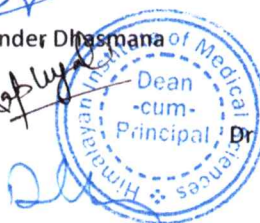 nder Dhasmana
Himalayan Institute of Medical Sciences
Dean
-cum-
Principal
Dr